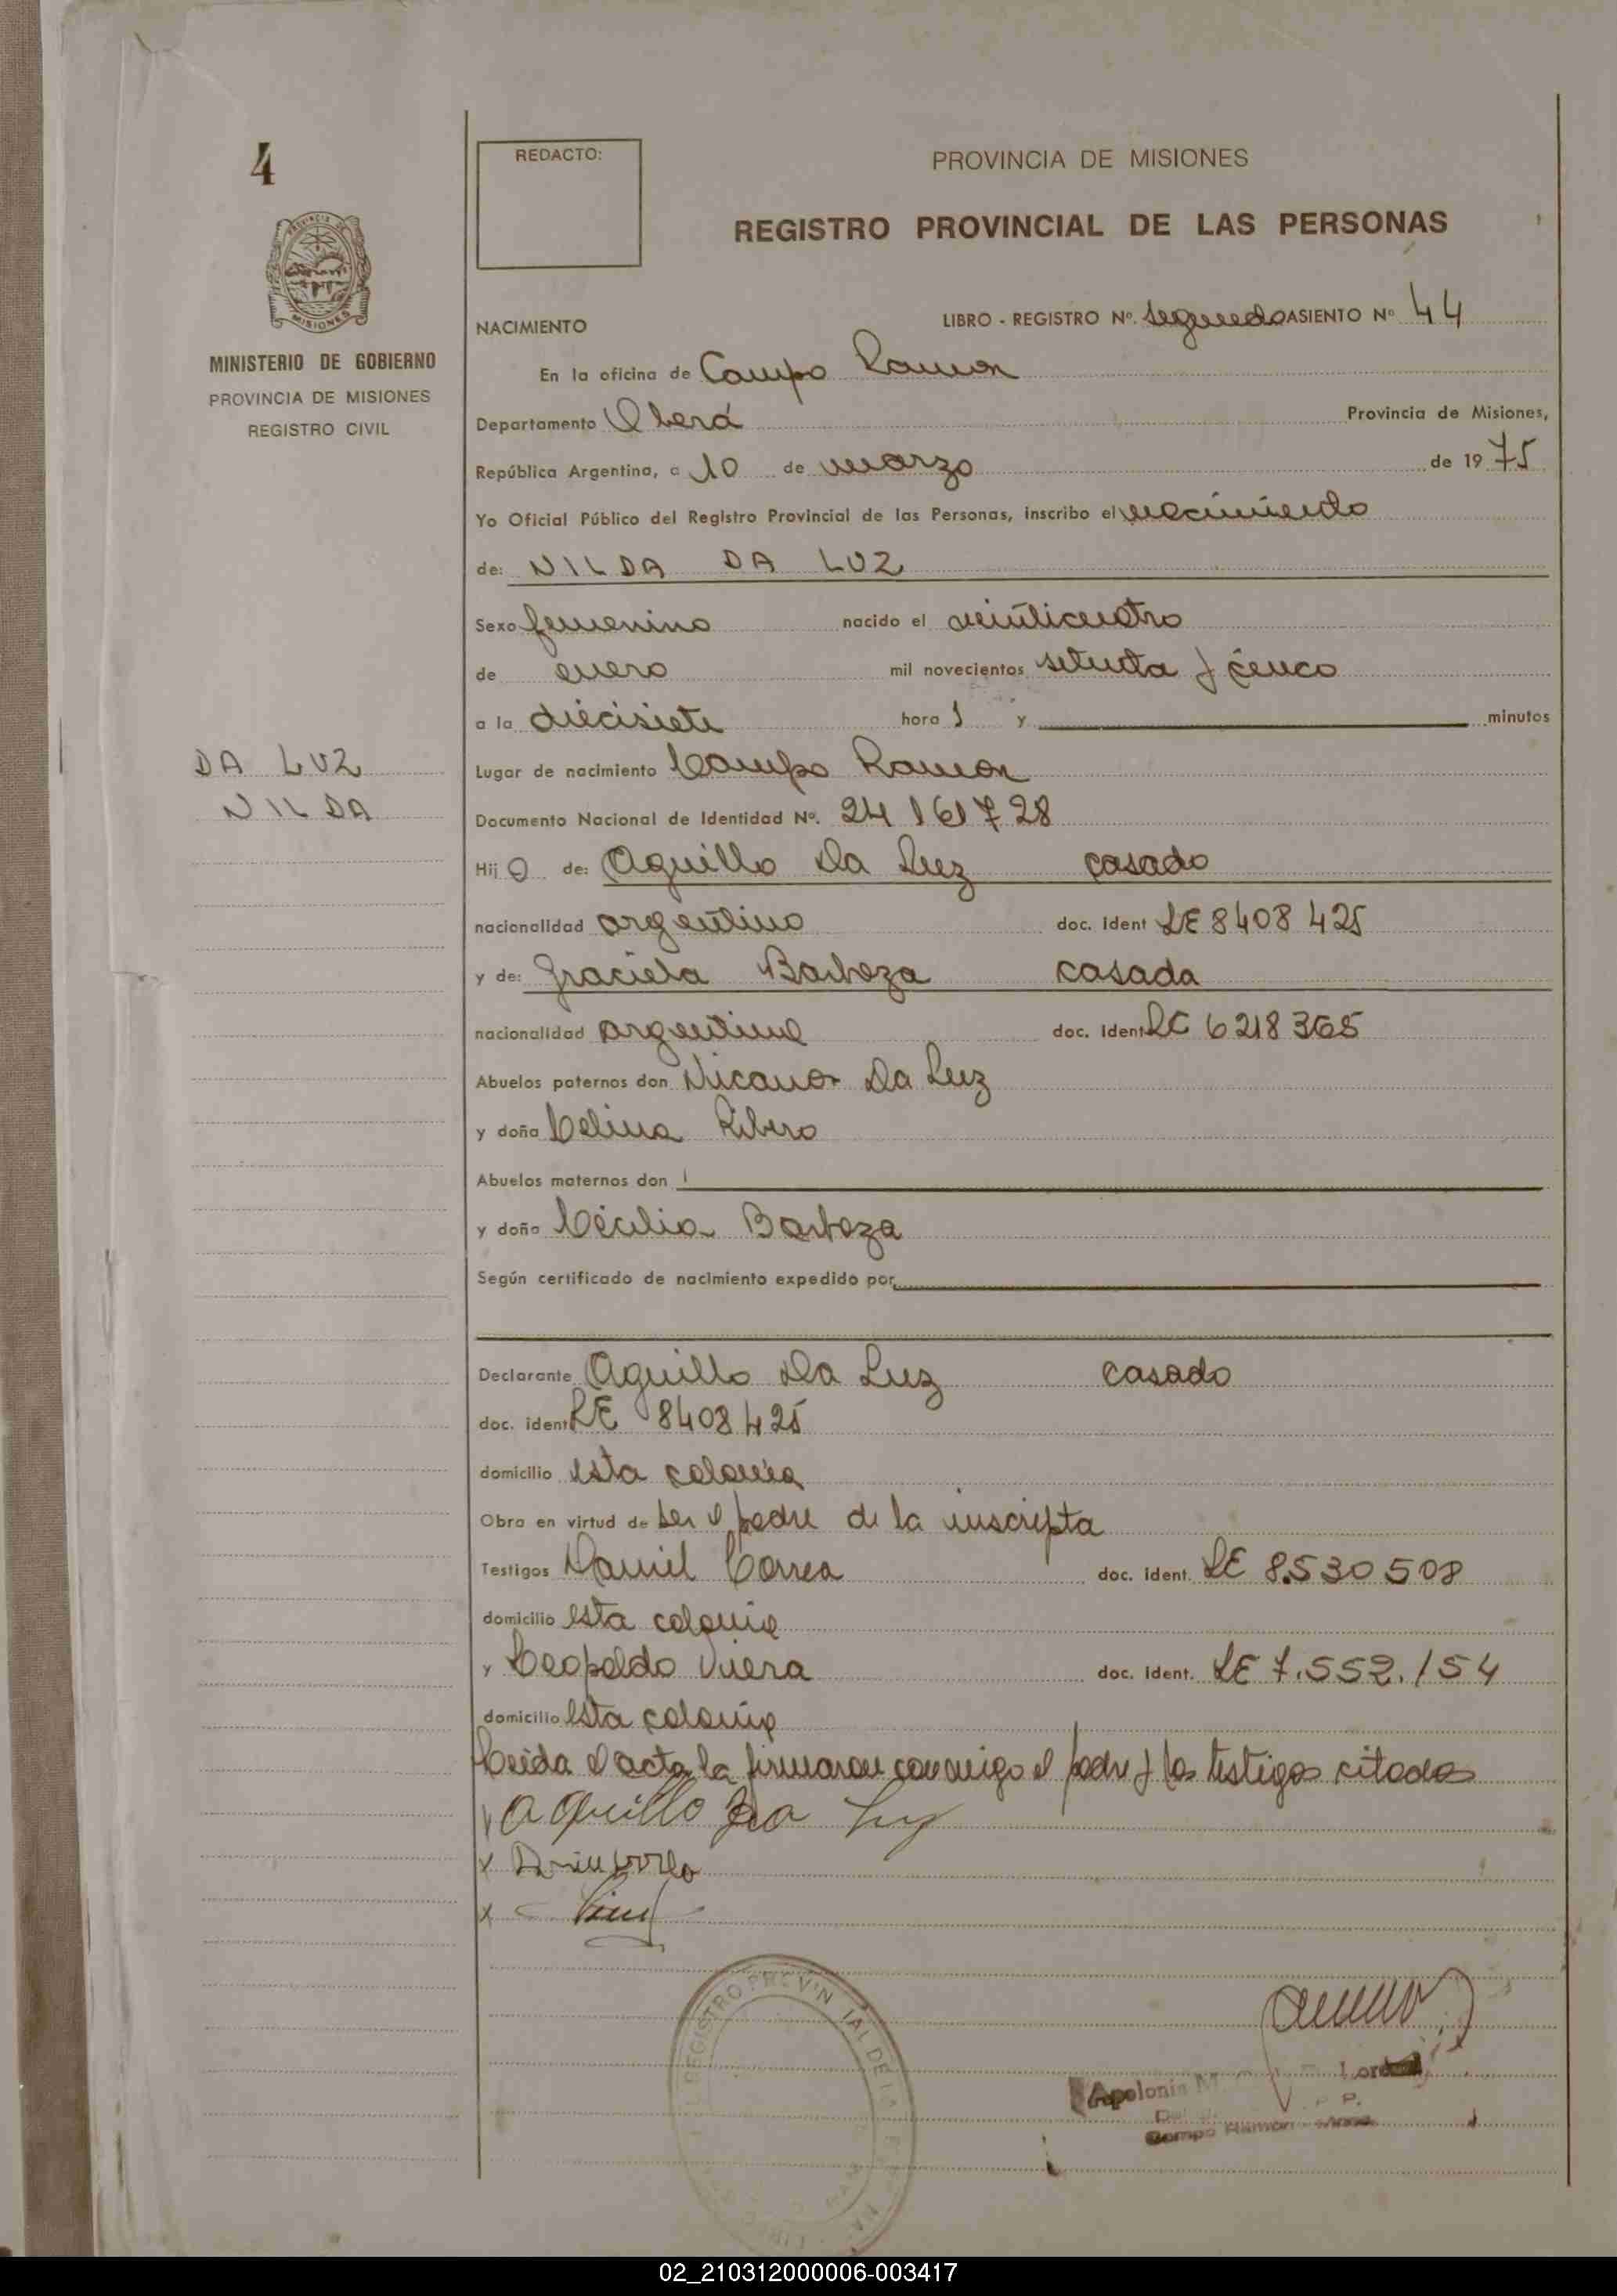 4
REDACTO:
PROVINCIA DE MISIONES
REGISTRO PROVINCIAL DE LAS PERSONAS
MISIONES
MINISTERIO DE GOBIERNO
PROVINCIA DE MISIONES
REGISTRO CIVIL
NACIMIENTO
LIBRO - REGISTRO Nº. Segundo ASIENTO Nº 44
En la oficina de Campo Ramon
Departamento Oberá Provincia de Misiones,
República Argentina, a 10 de marzo de 1975
Yo Oficial Público del Registro Provincial de las Personas, inscribo el nacimiento
de: NILDA DA LUZ
Sexo femenino nacido el veinticuatro
de enero mil novecientos setenta y cinco
a la diecisiete hora s y minutos
DA LUZ
NILDA
Lugar de nacimiento Campo Ramon
Documento Nacional de Identidad Nº. 24 161 728
Hij a de: Aquillo Da Luz casado
nacionalidad argentino doc. Ident LE 8408 425
y de: Graciela Barboza casada
nacionalidad argentina doc. Ident LC 6218365
Abuelos paternos don Nicanor Da Luz
y doña Celina Ribero
Abuelos maternos don
y doña Cecilia Barboza
Según certificado de nacimiento expedido por
Declarante Aquillo Da Luz casado
doc. ident LE 8408425
domicilio esta colonia
Obra en virtud de ser el padre de la inscripta
Testigos Daniel Correa doc. ident. LE 8.530508
domicilio esta colonia
y Leopoldo Viera doc. Ident. LE 7.552.154
domicilio esta colonia
Leída el acta la firmaron conmigo el padre y los testigos citados
Aquillo Da Luz
Apolonia
Campo Ramon
02_210312000006-003417